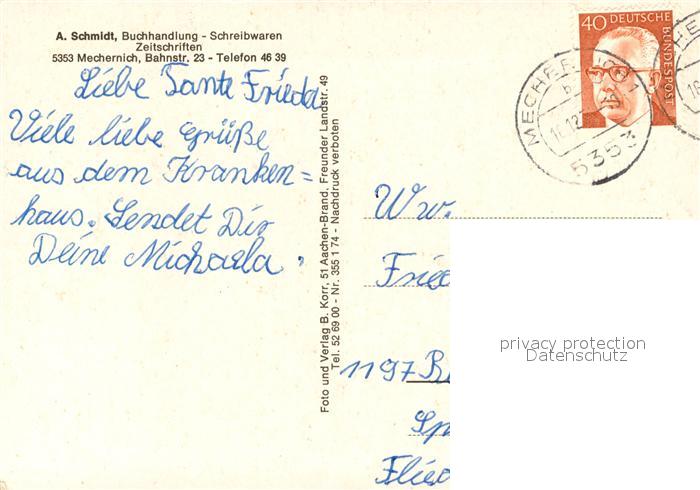 A. Schmidt, Buchhandlung - Schreibwaren
Zeitschriften
5353 Mechernich, Bahnstr. 23 - Telefon 46 39
Liebe Tante Frieda
Viele liebe Grüße
aus dem Kranken=
haus. Sendet Dir
Deine Michaela.
Foto und Verlag B. Korr, 51 Aachen-Brand, Freunder Landstr. 49
Tel. 52 69 00 - Nr. 355 1 74 - Nachdruck verboten
40 DEUTSCHE
BUNDESPOST
5353
Ww.
Fried
1197 B
Sp
Flied
privacy protection
Datenschutz